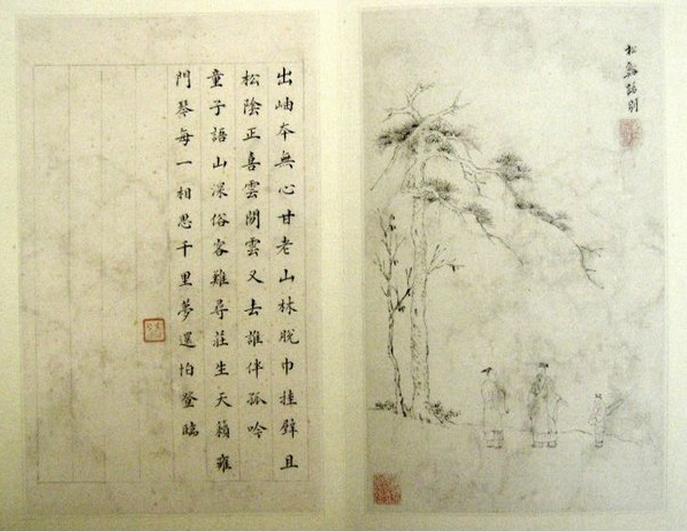 松話別
出岫夲無心甘老山林脫巾挂壁且
松陰正喜雲閒雲又去誰伴孤吟
童子語山深俗客難尋莊生天籟雍
門琴每一相思千里夢還怕登臨